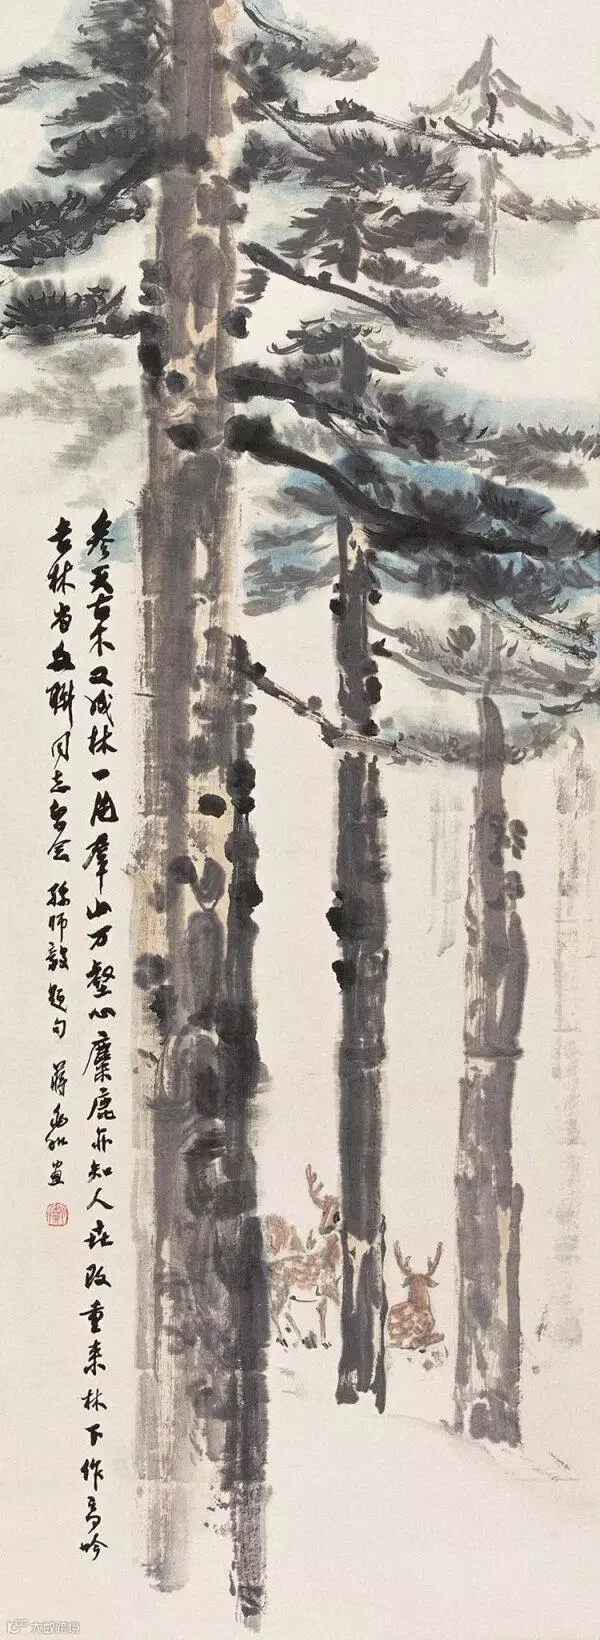 参天古木又成林一片羣山万壑心麋鹿亦知人世改重来林下作高吟
吉林省文联同志留念 孙师毅题句 蒋兆和画
大数跨境